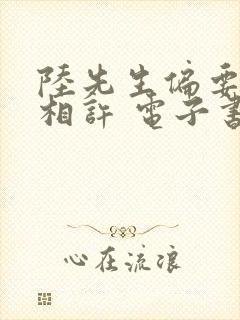 陸先生偏要
相許 電子書
心在流浪